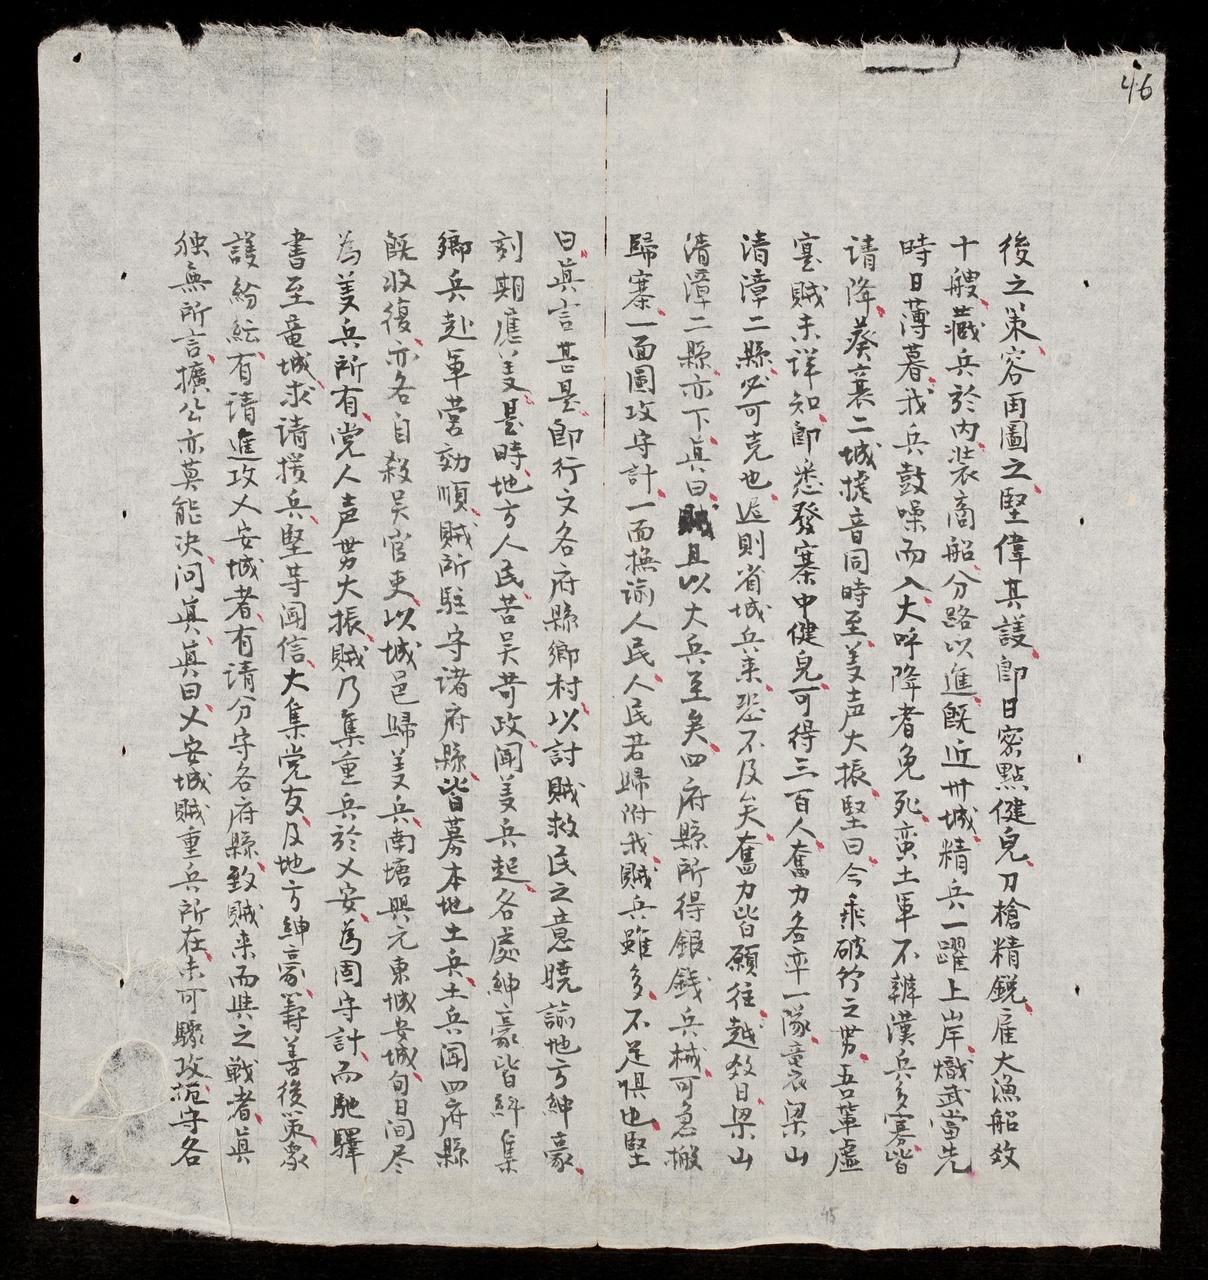 46
後之策容再圖之堅偉其議即日密點健兒刀槍精銳雇大漁船数
十艘藏兵於內裝商船分路以進既近卅城精兵一躍上岸熾武當先
時日薄暮我兵鼓噪而入大呼降者免死蛮土軍不辦漢兵多寡皆
请降葵襄二城捷音同時至美声大振堅曰今乘破竹之势吾輩虛
寔賊未详知即悉發寨中健兒可得三百人奮力各率一隊意襄梁山
清漳二縣必可克也遲則省城兵来恐不及矣奮力皆願往越数日梁山
清漳二縣亦下真曰賊且以大兵至矣四府縣所得銀錢兵械可急搬
歸寨一面圖攻守計一面撫諭人民人民若歸附我賊兵雖多不足惧也堅
曰真言甚是即行文各府縣鄉村以討賊救民之意曉諭地方紳豪
刻期應美是時地方人民苦吴苛政闻美兵起各處紳豪皆糾集
鄉兵赴軍营効順賊所駐守诸府縣皆募本地土兵土兵闻四府縣
既收復亦各自殺吴官吏以城邑歸美兵南塘興元東城安城旬日间尽
為美兵所有党人声势大振賊乃集重兵於乂安為固守計而馳驛
書至竜城求请援兵堅等闻信大集党友及地方紳豪籌善後策衆
議紛紜有请進攻乂安城者有请分守各府縣致賊来而與之戦者真
独無所言擴公亦莫能决问真真曰乂安城賊重兵所在未可驟攻扼守各
45